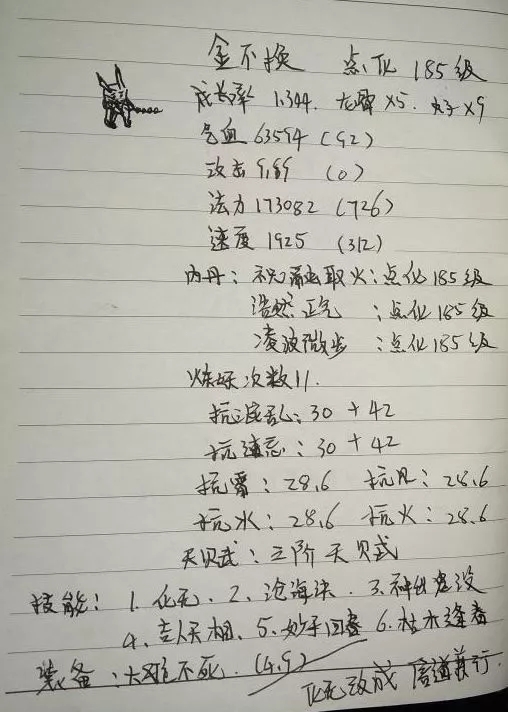 金不换 点化 185级
成长率 1.344. 龙骨 x5. 丸子 x9
气血 63594 (92)
攻击 9189 (0)
法力 173082 (726)
速度 1925 (312)
内丹: 祝融取火: 点化185级
浩然正气 : 点化185级
凌波微步 : 点化185级
炼妖次数11.
抗混乱: 30 + 42
抗遗忘: 30 + 42
抗雷: 28.6 抗风: 28.6
抗水: 28.6 抗火: 28.6
天贝式: 三阶天贝式
技能: 1. 化无. 2. 沧海决. 3. 神出鬼没
4. 吉人天相. 5. 妙手回春 6. 枯木逢春
装备: 大难不死. (4.9)
化无改成 信道